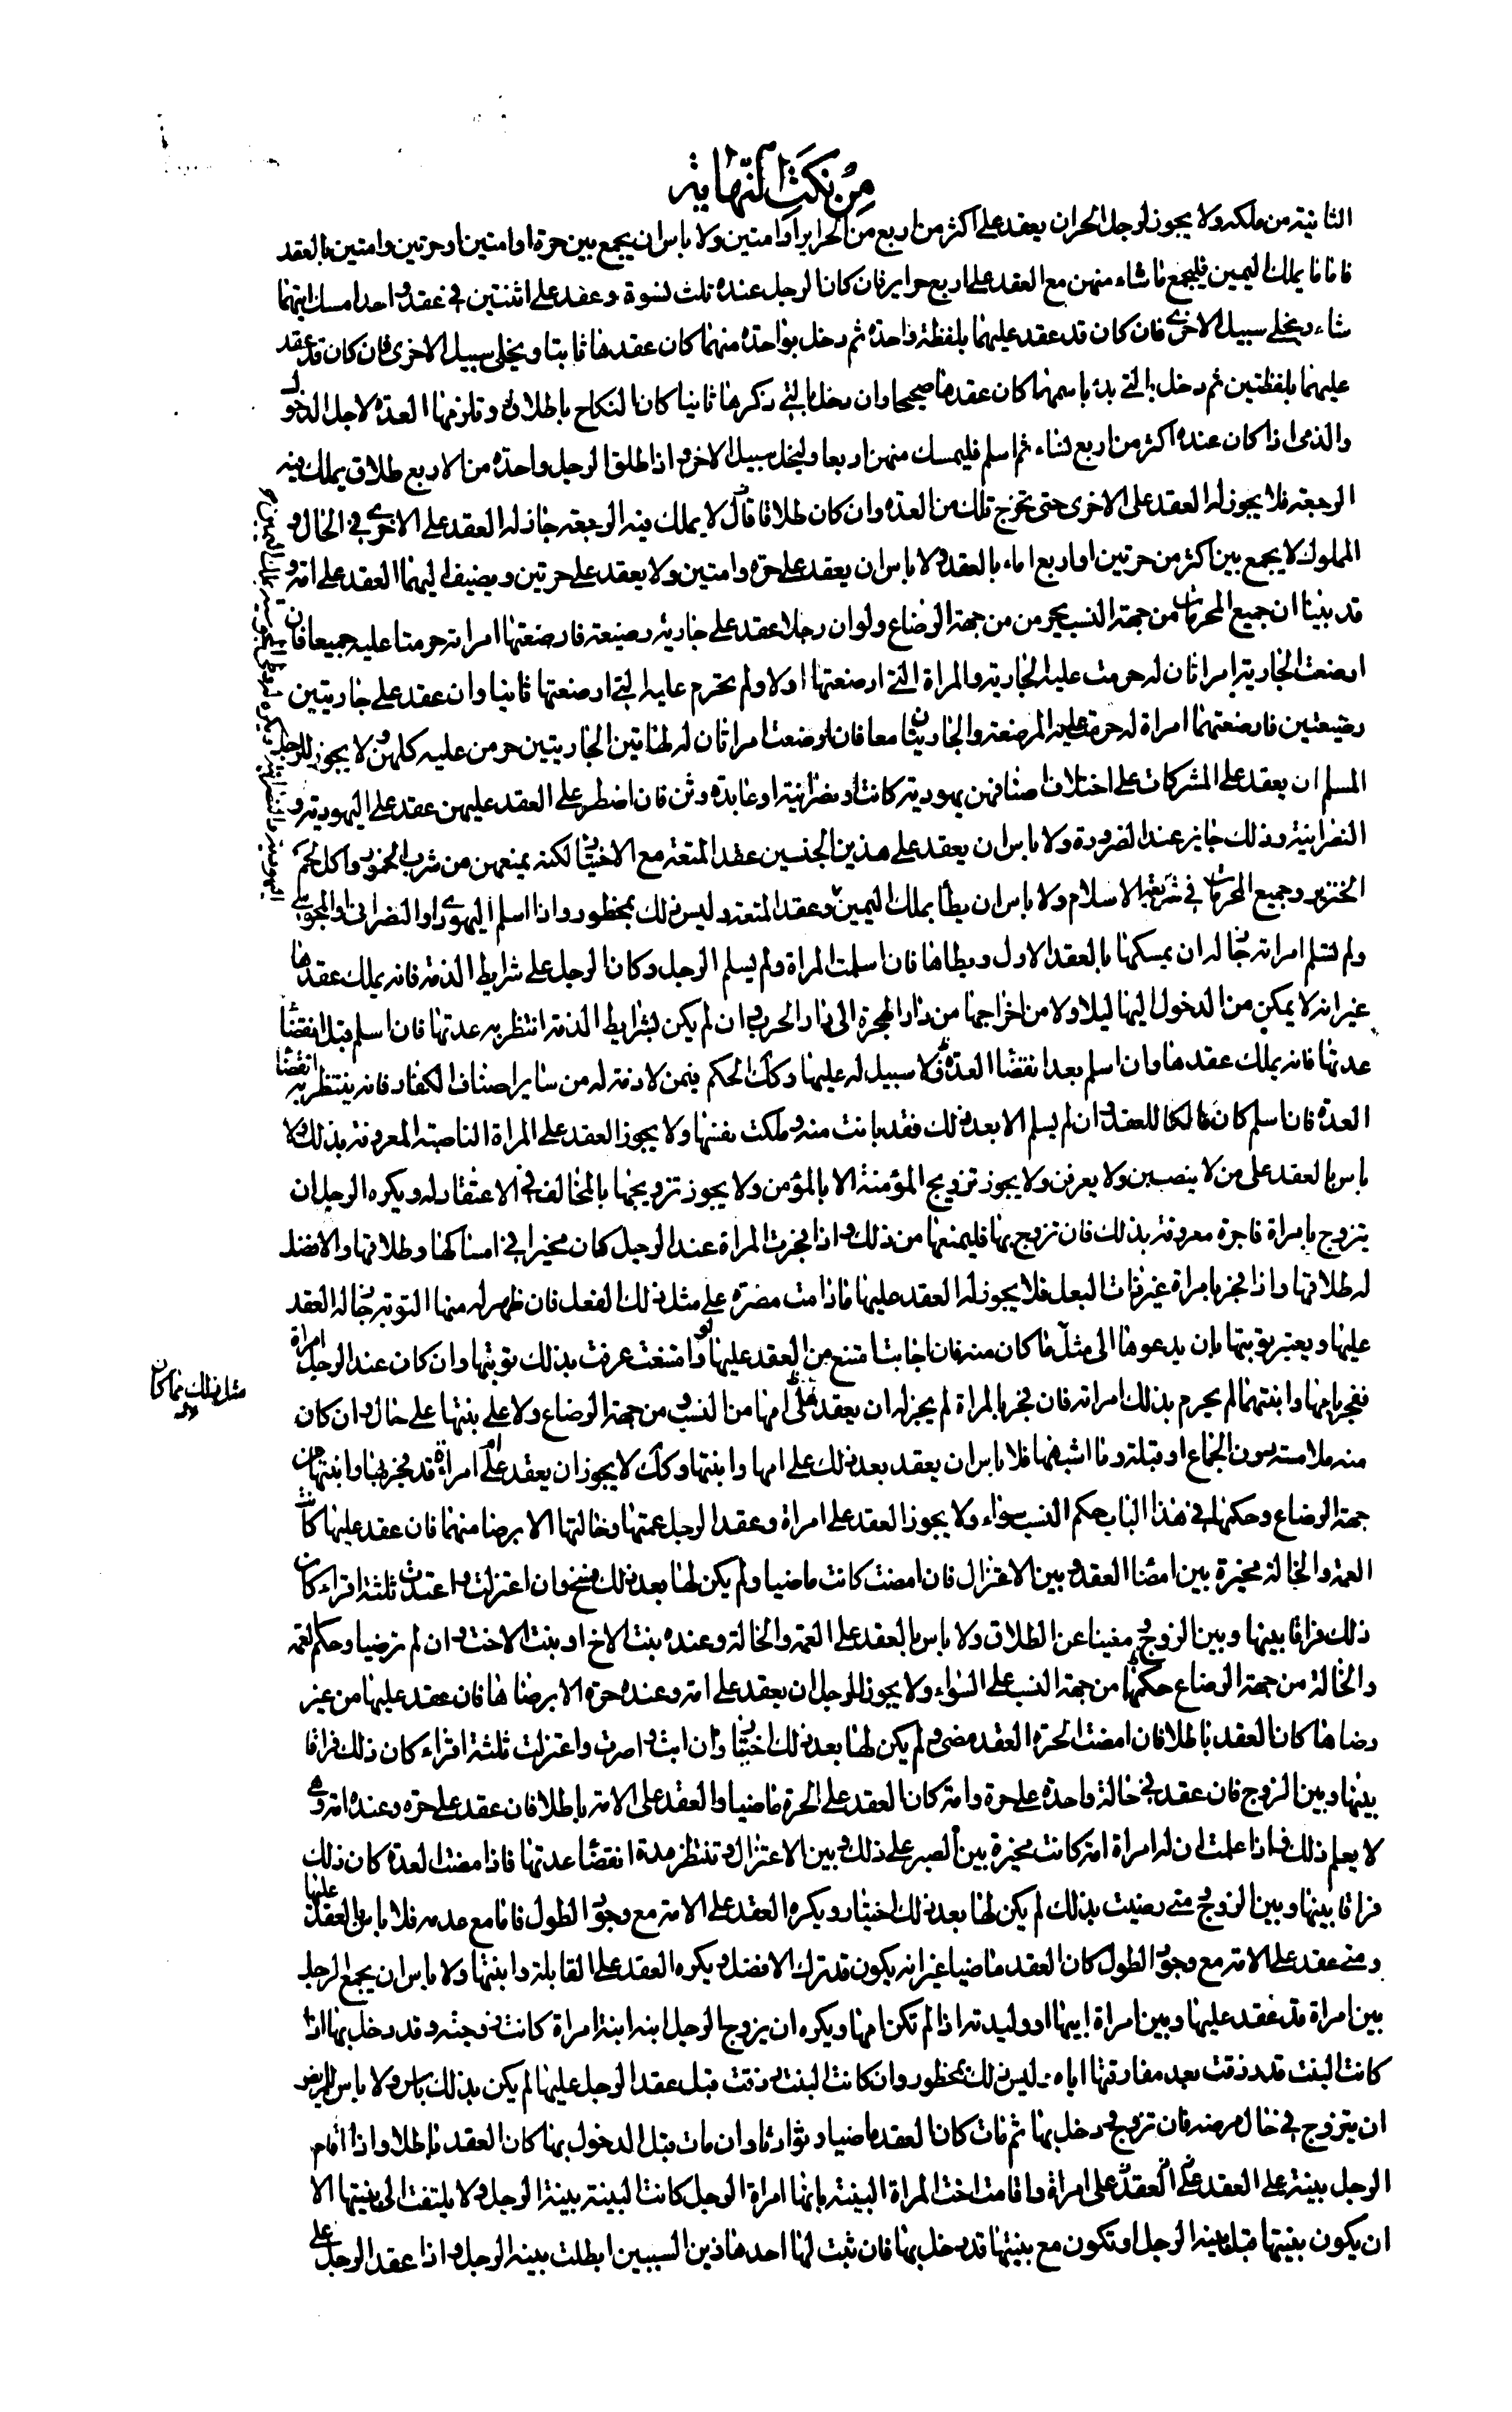 مِنْ نكَتِ النهاية
الثانية من ملكه ولا يجوز لرجل الحر ان يعقد على اكثر من اربع من الحراير او امتين ولا باس ان يجمع بين حرة او امتين او حرتين وامتين بالعقد
فاما ما يملك اليمين فليجمع ما شاء منهن مع العقد على اربع حراير فان كان الرجل عنده ثلث نسوة وعقد على اثنتين في عقد واحد امسك ايتهما
شاء ويخلى سبيل الاخرى فان كان قد عقد عليهما بلفظة واحدة ثم دخل بواحدة منهما كان عقدها ثابتا ويخلى سبيل الاخرى فان كان قد عقد
عليهما بلفظتين ثم دخل بالتى بدء باسمها كان عقدها صحيحا وان دخل بالتى ذكرها ثانيا كان النكاح باطلا وتلزمها العدة لاجل الدخول
والذمى اذا كان عنده اكثر من اربع نساء ثم اسلم فليمسك منهن اربعا وليخل سبيل الاخر واذا طلق الرجل واحدة من الاربع طلاق يملك فيه
الرجعة فلا يجوز له العقد على الاخرى حتى تخرج تلك من العدة وان كان طلاقا لا يملك فيه الرجعة جاز له العقد على الاخرى في الحال و
المملوك لا يجمع بين اكثر من حرتين او اربع اماء بالعقد ولا باس ان يعقد على حرة وامتين ولا يعقد على حرتين ويضيف اليهما العقد على امة و
قد بينا ان جميع المحرمات من جهة النسب يحرمن من جهة الرضاع ولو ان رجلا عقد على جارية رضيعة فارضعتها امراته حرمتا عليه جميعا فان
ارضعت الجارية امراتان له حرمت عليه الجارية والمراة التى ارضعتها اولا ولم تحرم عليه التى ارضعتها ثانيا وان عقد على جاريتين
رضيعتين فارضعتهما امراة له حرمت عليه المرضعة والجاريتان معا فان ارضعت امراتان له هاتين الجاريتين حرمن عليه كلهن ولا يجوز للرجل
المسلم ان يعقد على المشركات على اختلاف اصنافهن يهودية كانت او نصرانية او عابدة وثن فان اضطر على العقد عليهن عقد على اليهودية و
النصرانية وذلك جايز عند الضرورة ولا باس ان يعقد على هذين الجنسين عقد المتعة مع الاختيار لكنه يمنعهن من شرب الخمور واكل لحم
الخنزير وجميع المحرمات في شريعة الاسلام ولا باس ان يطأ بملك اليمين وعقد المتعة وليس ذلك بمحظور واذا اسلم اليهودى او النصرانى او المجوسى
ولم تسلم امراته جاز له ان يمسكها بالعقد الاول ويطاها فان اسلمت المراة ولم يسلم الرجل وكان الرجل على شرايط الذمة فانه يملك عقدها
غير انه لا يمكن من الدخول اليها ليلا ولا من اخراجها من دار الهجرة الى دار الحرب وان لم يكن بشرايط الذمة انتظر به عدتها فان اسلم قبل انقضا
عدتها فانه يملك عقدها وان اسلم بعد انقضا العدة فلا سبيل له عليها وكك الحكم فيمن لا ذمة له من ساير اصناف الكفار فانه ينتظر به انقضا
العدة فان اسلم كان مالكا للعقد وان لم يسلم الا بعد ذلك فقد بانت منه وملكت نفسها ولا يجوز العقد على المراة الناصبة المعروفة بذلك ولا
باس بالعقد على من لا ينصبن ولا يعرفن ولا يجوز تزويج المؤمنة الا بالمؤمن ولا يجوز تزويجها بالمخالف في الاعتقاد له ويكره الرجل ان
يتزوج بامراة فاجرة معروفة بذلك فان تزوج بها فليمنعها من ذلك واذا فجرت المراة عند الرجل كان مخيرا في امساكها وطلاقها والافضل
له طلاقها واذا فجر بامراة غير ذات البعل فلا يجوز له العقد عليها مادامت مصرة على مثل ذلك الفعل فان ظهر له منها التوبة جاز له العقد
عليها ويعتبر توبتها بان يدعوها الى مثل ما كان منه فان اجابت امتنع من العقد عليها ولو امتنعت عرفت بذلك توبتها وان كان عند الرجل امراة
ففجر بامها وابنتها لم يحرم بذلك امراته فان فجر بالمراة لم يجز له ان يعقد على امها من النسب ومن جهة الرضاع ولا على بنتها على حال وان كان
منه ملامسة دون الجماع او قبلة وما اشبهها فلا باس ان يعقد بعد ذلك على امها وابنتها وكك لا يجوز ان يعقد على ام امراة قد فجر بها وابنتها من
جهة الرضاع وحكمها في هذا الباب حكم النسب سواء ولا يجوز العقد على امراة وعقد الرجل عمتها وخالتها الا برضا منهما فان عقد عليها كانت
العمة والخالة مخيرة بين امضا العقد وبين الاعتزال فان امضت كانت ماضيا ولم يكن لها بعد ذلك فسخ وان اعتزلت واعتدت ثلثة اقراء كان
ذلك فراقا بينها وبين الزوج مغنيا عن الطلاق ولا باس بالعقد على العمة والخالة وعنده بنت الاخ او بنت الاخت وان لم ترضيا وحكم العمة
والخالة من جهة الرضاع حكمهما من جهة النسب على السواء ولا يجوز للرجل ان يعقد على امة وعنده حرة الا برضاها فان عقد عليها من غير
رضاها كان العقد باطلا فان امضت الحرة العقد مضى ولم يكن لها بعد ذلك اختيار وان ابت واصرت واعتزلت ثلثة اقراء كان ذلك فراقا
بينها وبين الزوج فان عقد في حالة واحدة على حرة وامة كان العقد على الحرة ماضيا والعقد على الامة باطلا فان عقد على حرة وعنده امة وهى
لا يعلم ذلك فاذا علمت ان له امراة امة كانت مخيرة بين الصبر على ذلك وبين الاعتزال وتنتظر مدة انقضا عدتها فاذا مضت العدة كان ذلك
فراقا بينها وبين الزوج متى رضيت بذلك لم يكن لها بعد ذلك اختيار ويكره العقد على الامة مع وجود الطول فاما مع عدمه فلا باس بالعقد عليها
ومتى عقد على الامة مع وجود الطول كان العقد ماضيا غير انه يكون قد ترك الافضل ويكره العقد على القابلة وابنتها ولا باس ان يجمع الرجل
بين امراة قد عقد عليها وبين امراة ابيها او وليدته اذا لم تكن امها ويكره ان يزوج الرجل ابنه ابنة امراة كانت زوجته وقد دخل بها اذا
كانت البنت قد رزقت بعد مفارقتها اياه وليس ذلك بمحظور وان كانت البنت رزقت قبل عقد الرجل عليها لم يكن بذلك باس ولا باس للمريض
ان يتزوج في حال مرضه فان تزوج ودخل بها ثم مات كان العقد ماضيا وتوارثا وان مات قبل الدخول بها كان العقد باطلا واذا اقام
الرجل بينة على العقد على امراة واقامت اخت المراة البينة بانها امراة الرجل كانت البينة بينة الرجل ولا يلتفت الى بينتها الا
ان يكون بينتها قبل بينة الرجل او تكون مع بينتها قد دخل بها فان ثبت لها احد هاذين السببين ابطلت بينة الرجل واذا عقد الرجل على
مثل ذلك فما كان